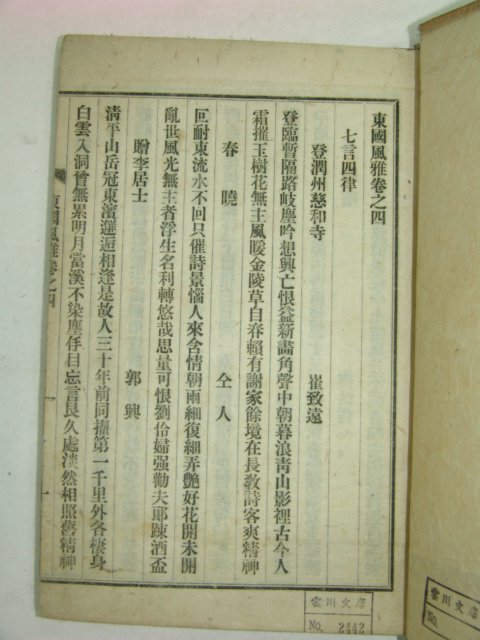 東國風雅卷之四
七言四律
登潤州慈和寺 崔致遠
登臨暫隔路岐塵吟想興亡恨益新畵角聲中朝暮浪青山影裡古今人
霜摧玉樹花無主風暖金陵草自春賴有謝家餘境在長教詩客爽精神
春曉 仝人
叵耐東流水不回只催詩景惱人來含情朝雨細復細弄艷好花開未開
亂世風光無主者浮生名利轉悠哉思量可恨劉伶婦强勸夫郞踈酒盃
贈李居士 郭輿
淸平山岳冠東濱邂逅相逢是故人三十年前同擢第一千里外各棲身
白雲入洞曾無累明月當溪不染塵
目忘言良久處淡然相照舊精神
東國風雅卷之四
一
雲川文庫
No. 2442
雲川文庫
No.